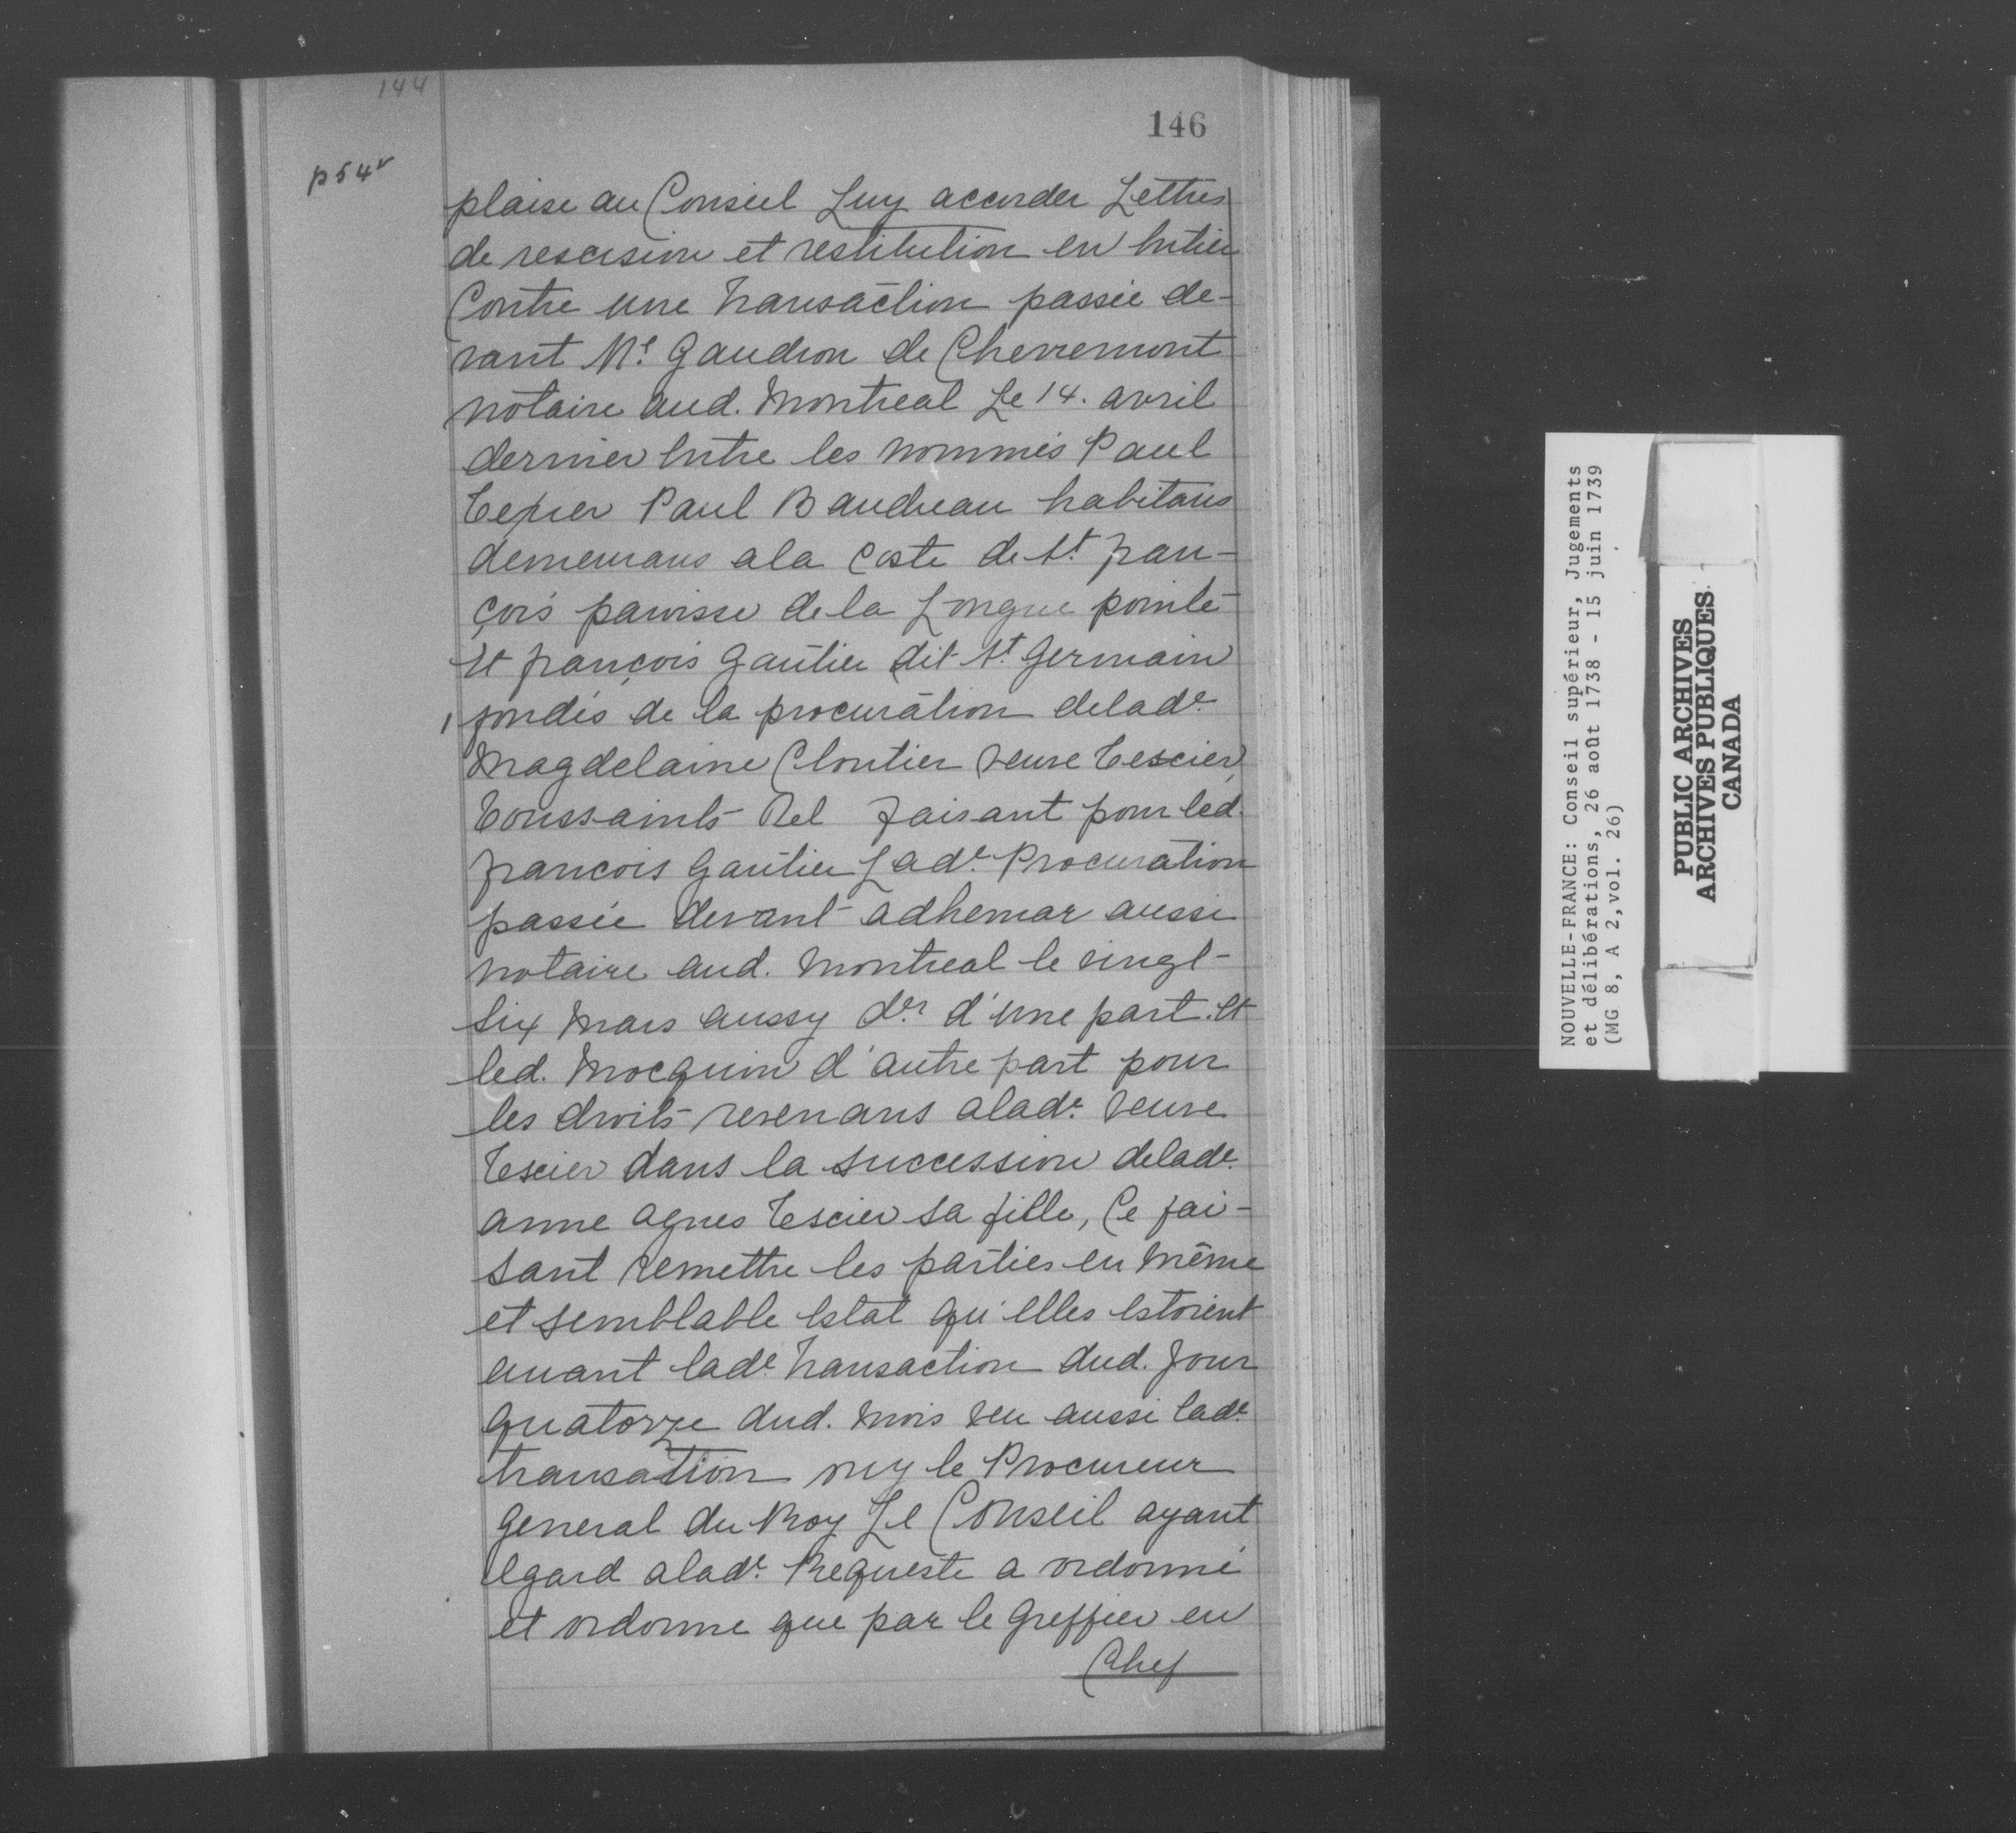 144
146
p 54v
plaise au Conseil Luy accorder Lettres
de rescision et restitution en Entier
Contre une Transaction passée de-
vant Me Gaudron de Chevremont
notaire aud. Montreal Le 14. avril
dernier Entre les nommés Paul
Texier Paul Baudreau habitans
demeurans a la Coste de St. fran-
çois paroisse de la Longue pointe
Et françois Gautier dit St. Germain
fondés de la procuration delade
Magdelaine Cloutier veuve Tescier,
Toussaints Rel faisant pour led.
francois Gautier Lade. Procuration
passée devant adhemar aussi
notaire aud. Montreal le vingt-
six Mars aussy der d'une part. Et
led. Mocquin d'autre part pour
les droits revenans alade. veuve
Tescier dans la succession delade.
anne agnes Tescier sa fille, Ce fai-
sant Remettre les parties en même
et semblable Estat qu'Elles Estoient
avant lade. Transaction dud. Jour
quatorze dud. mois veu aussi lade.
transation ouy le Procureur
General du Roy Le Conseil ayant
Egard alade. Requeste a ordonné
et ordonne que par le Greffier en
Chef
NOUVELLE-FRANCE: Conseil supérieur, Jugements
et délibérations, 26 août 1738 - 15 juin 1739
(MG 8, A 2, vol. 26)
PUBLIC ARCHIVES
ARCHIVES PUBLIQUES
CANADA